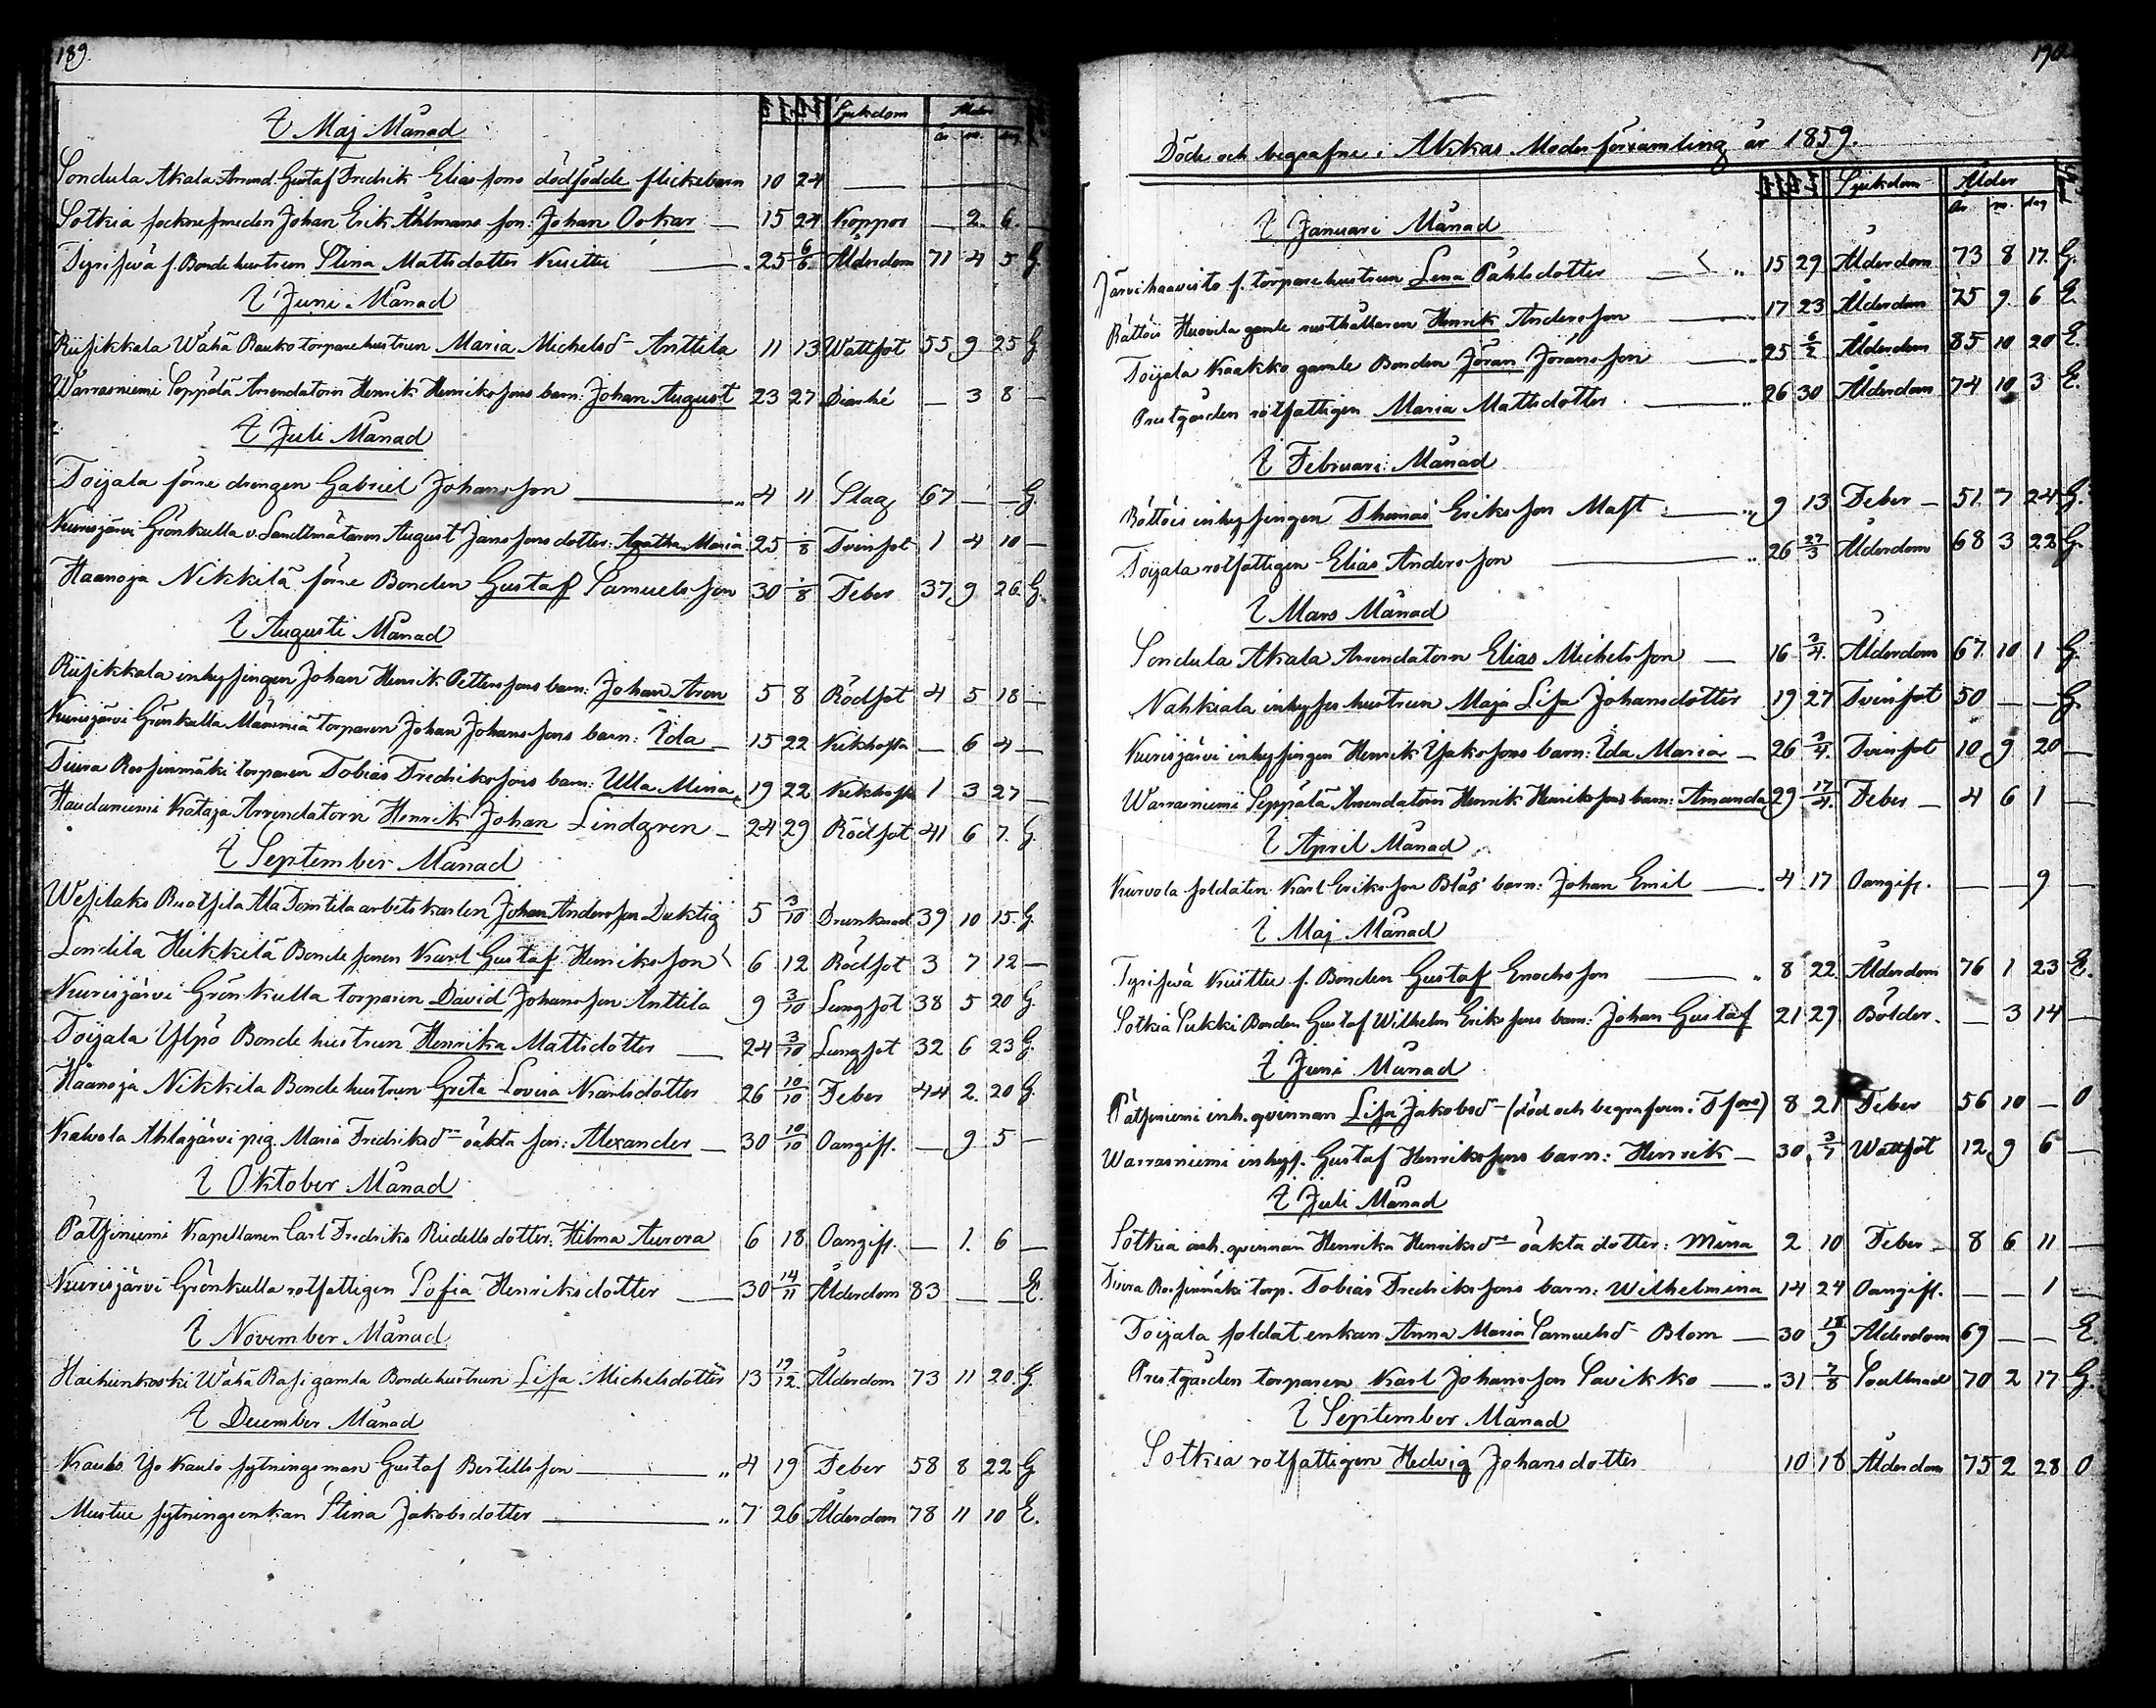 189.
Sjukdom Ålder
år m. dag
I Maj Månad
Sondula Akala Arrend. Gustaf Fredrik Eliassons dödfödde flickebarn 10 24 — —
Sotkia socknesmeden Johan Erik Ahlmans son: Johan Oskar — 15 24 Koppor — 2. 6. —
Tyrisevä f. Bonde hustrun Stina Mattsdotter Kuittu — 25 6/6 Ålderdom 71 4 5 G.
I Juni Månad
Riisikkala Wähä Rauko torpare hustrun Maria Michelsdr Anttila 11 13 Wattsot 55 9 25 G.
Warrasniemi Seppälä Arrendatorn Henrik Henrikssons barn: Johan August 23 27 Diarhé — 3 8 —
I Juli Månad
Toijala förre drengen Gabriel Johansson — 4 11 Slag 67 — — G.
Kurisjärvi Grönkulla v. Landtmätaren August Janssons dotter: Agatha Maria 25 ·/8 Tvinsot 1 4 10 —
Haanoja Nikkilä förre Bonden Gustaf Samuelsson 30 ·/8 Feber 37 9 26 G.
I Augusti Månad
Riisikkala inhysingen Johan Henrik Petterssons barn: Johan Aron 5 8 Rödsot 4 5 18 —
Kurisjärvi Grönkulla Mäminiä torparen Johan Johanssons barn: Ida — 15 22 Kikhosta — 6 4 —
Tiura Rossinmäki torparen Tobias Fredrikssons barn: Ulla Mina 19 22 Kikhosta 1 3 27 —
Haudaniemi Kataja Arrendatorn Henrik Johan Lindgren — 24 29 Rödsot 41 6 7. G.
I September Månad
Wesilaks Ruotsila Ala Tomtila arbetskarlen Johan Andersson Duktig 5 3/10 Drunknad 39 10 15. G.
Lontila Heikkilä Bondesonen Karl Gustaf Henriksson 6 12 Rödsot 3 7 12 —
Kurisjärvi Grönkulla torparen David Johansson Anttila 9 3/10 Lungsot 38 5 20 G.
Toijala Ylpö Bonde hustrun Henrika Mattsdotter — 24 3/10 Lungsot 32 6 23 G.
Haanoja Nikkilä Bonde hustrun Greta Lovisa Karlsdotter 26 10/10 Feber 44 2. 20 G.
Kalvola Ahlajärvi pig. Maria Fredriksdr oäkta son: Alexander — 30 10/10 Oangift. — 9 5 —
I Oktober Månad
Pätsiniemi Kapellanen Carl Fredriks Riedells dotter: Hilma Aurora 6 18 Oangift. — 1. 6 —
Kurisjärvi Grönkulla rotfattigen Sofia Henriksdotter — 30 14/11 Ålderdom 83 — — E.
I November Månad
Haihunkoski Wähä Rasi gamla Bondehustrun Lisa Michelsdotter 13 19/12 Ålderdom 73 11 20. G.
I December Månad
Kaulo Yso Kaulo sytningsman Gustaf Bertillsson — 4 19 Feber 58 8 22 G
Mustue sytningsenkan Stina Jakobsdotter — 7 26 Ålderdom 78 11 10 E.
190.
Döde och begrafne i Akkas Moderförsamling år 1859.
Sjukdom Ålder
år m. dag
I Januari Månad
Järvihaavisto f. torpare hustrun Lena Påhlsdotter — 15 29 Ålderdom 73 8 17. G.
Rättöis Huovila gamle rusthållaren Henrik Andersson — 17 23 Ålderdom 75 9 6 E.
Toijala Kaakko gamle Bonden Jöran Jöransson — 25 6/2 Ålderdom 85 10 20 E.
Prestgården rotfattigen Maria Mattsdotter. — 26 30 Ålderdom 74 10 3 E.
I Februari Månad
Rättöis inhysingen Thomas Eriksson Mast — 9 13 Feber — 51 7 24 G.
Toijala rotfattigen Elias Andersson — 26 27/3 Ålderdom 68 3 22 G.
I Mars Månad
Sondula Akala Arrendatorn Elias Michelsson — 16 3/4. Ålderdom 67 10 1 G.
Nahkiala inhyses hustrun Maja Lisa Johansdotter 19 27 Tvinsot 50 — — G.
Kurisjärvi inhysingen Henrik Jakobssons barn: Ida Maria — 26 3/4. Tvinsot 10 9 20 —
Warrasniemi Seppälä Arrendatorn Henrik Henrikssons barn: Amanda 29 17/4. Feber — 4 6 1 —
I April Månad
Kurvola soldaten Karl Eriksson Blås barn: Johan Emil — 4 17 Oangift. — — 9 —
I Maj Månad
Tyrisevä Kuittu f. Bonden Gustaf Enochsson — 8 22. Ålderdom 76 1 23 E.
Sotkia Sukki Bonden Gustaf Wilhelm Erikssons barn: Johan Gustaf 21 29 Bölder. — 3 14 —
I Juni Månad
Pätsiniemi inh. qvinnan Lisa Jakobsdr (död och begrafven i Tfors) 8 21 Feber 56 10 — O
Warrasniemi inhys. Gustaf Henrikssons barn: Henrik — 30 3/7 Wattsot 12 9 6 —
I Juli Månad
Sotkia inh. qvinnan Henrika Henriksdr oäkta dotter: Mina 2 10 Feber — 8 6 11 —
Tiura Rossinmäki torp. Tobias Fredrikssons barn: Wilhelmina 14 24 Oangift. — — 1 —
Toijala soldat enkan Anna Maria Samuelsdr Blom — 30 18/9 Ålderdom 69 — — E.
Prestgården torparen Karl Johansson Savikko — 31 7/8 70 2 17 G.
I September Månad
Sotkia rotfattigen Hedvig Johansdotter 10 18 Ålderdom 75 2 28 O